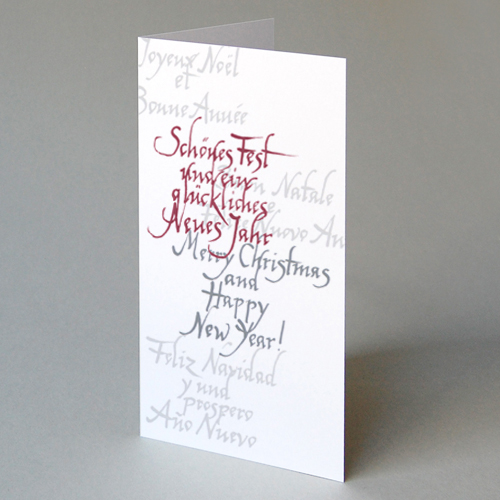 Joyeux Noël
et
Bonne Année
Schönes Fest
und ein
glückliches
Neues Jahr
Natale
Nuovo
Merry Christmas
and
Happy
New Year!
Feliz Navidad
y und
prospero
Año Nuevo